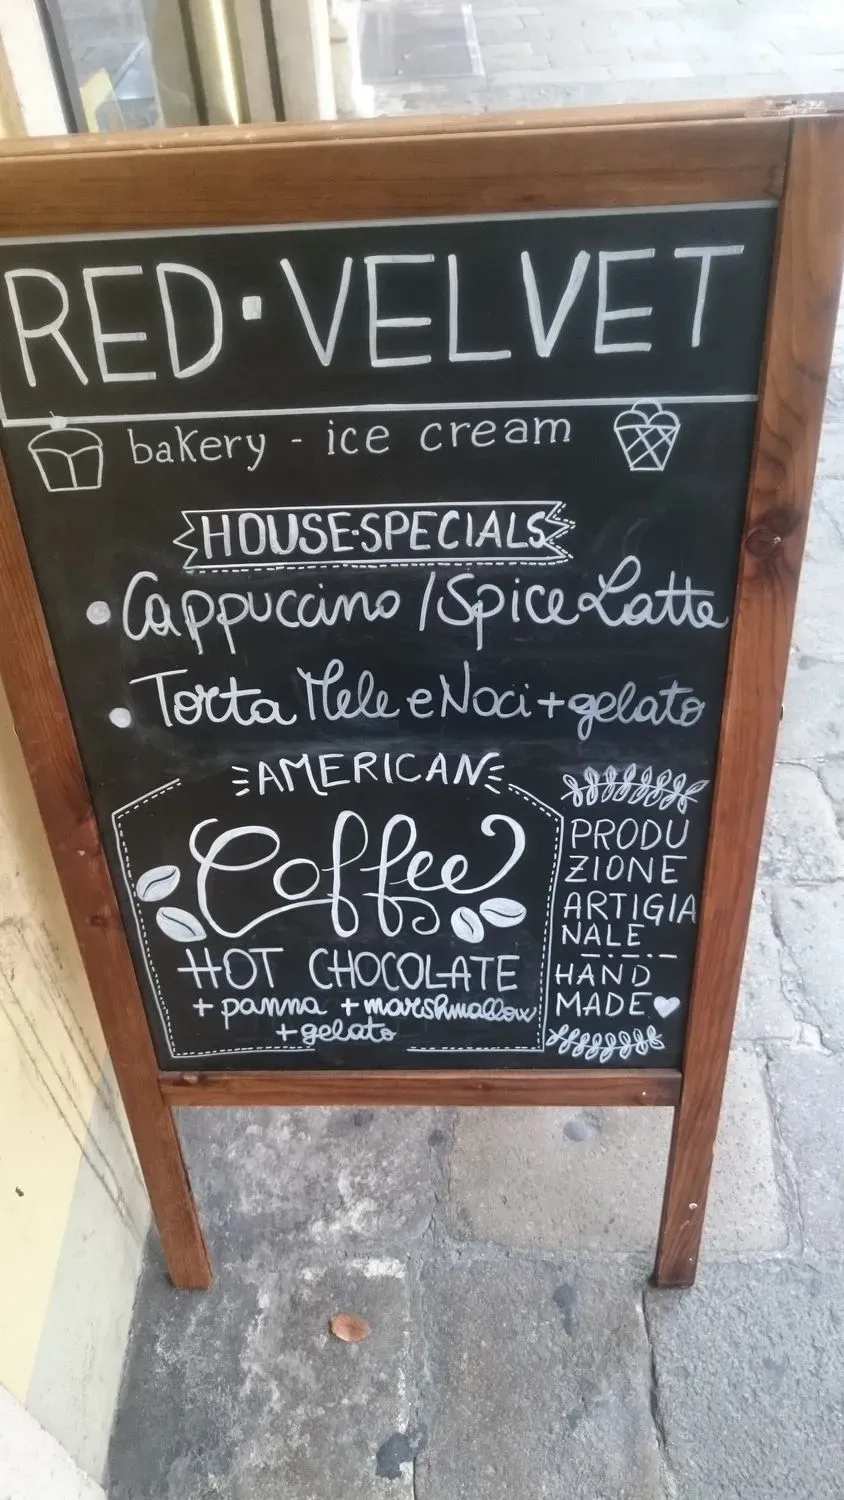 RED·VELVET
bakery - ice cream
HOUSE·SPECIALS
• Cappuccino / Spice Latte
• Torta Mele e Noci + gelato
AMERICAN
Coffee
HOT CHOCOLATE
+ panna + marshmallow
+ gelato
PRODU
ZIONE
ARTIGIA
NALE
HAND
MADE